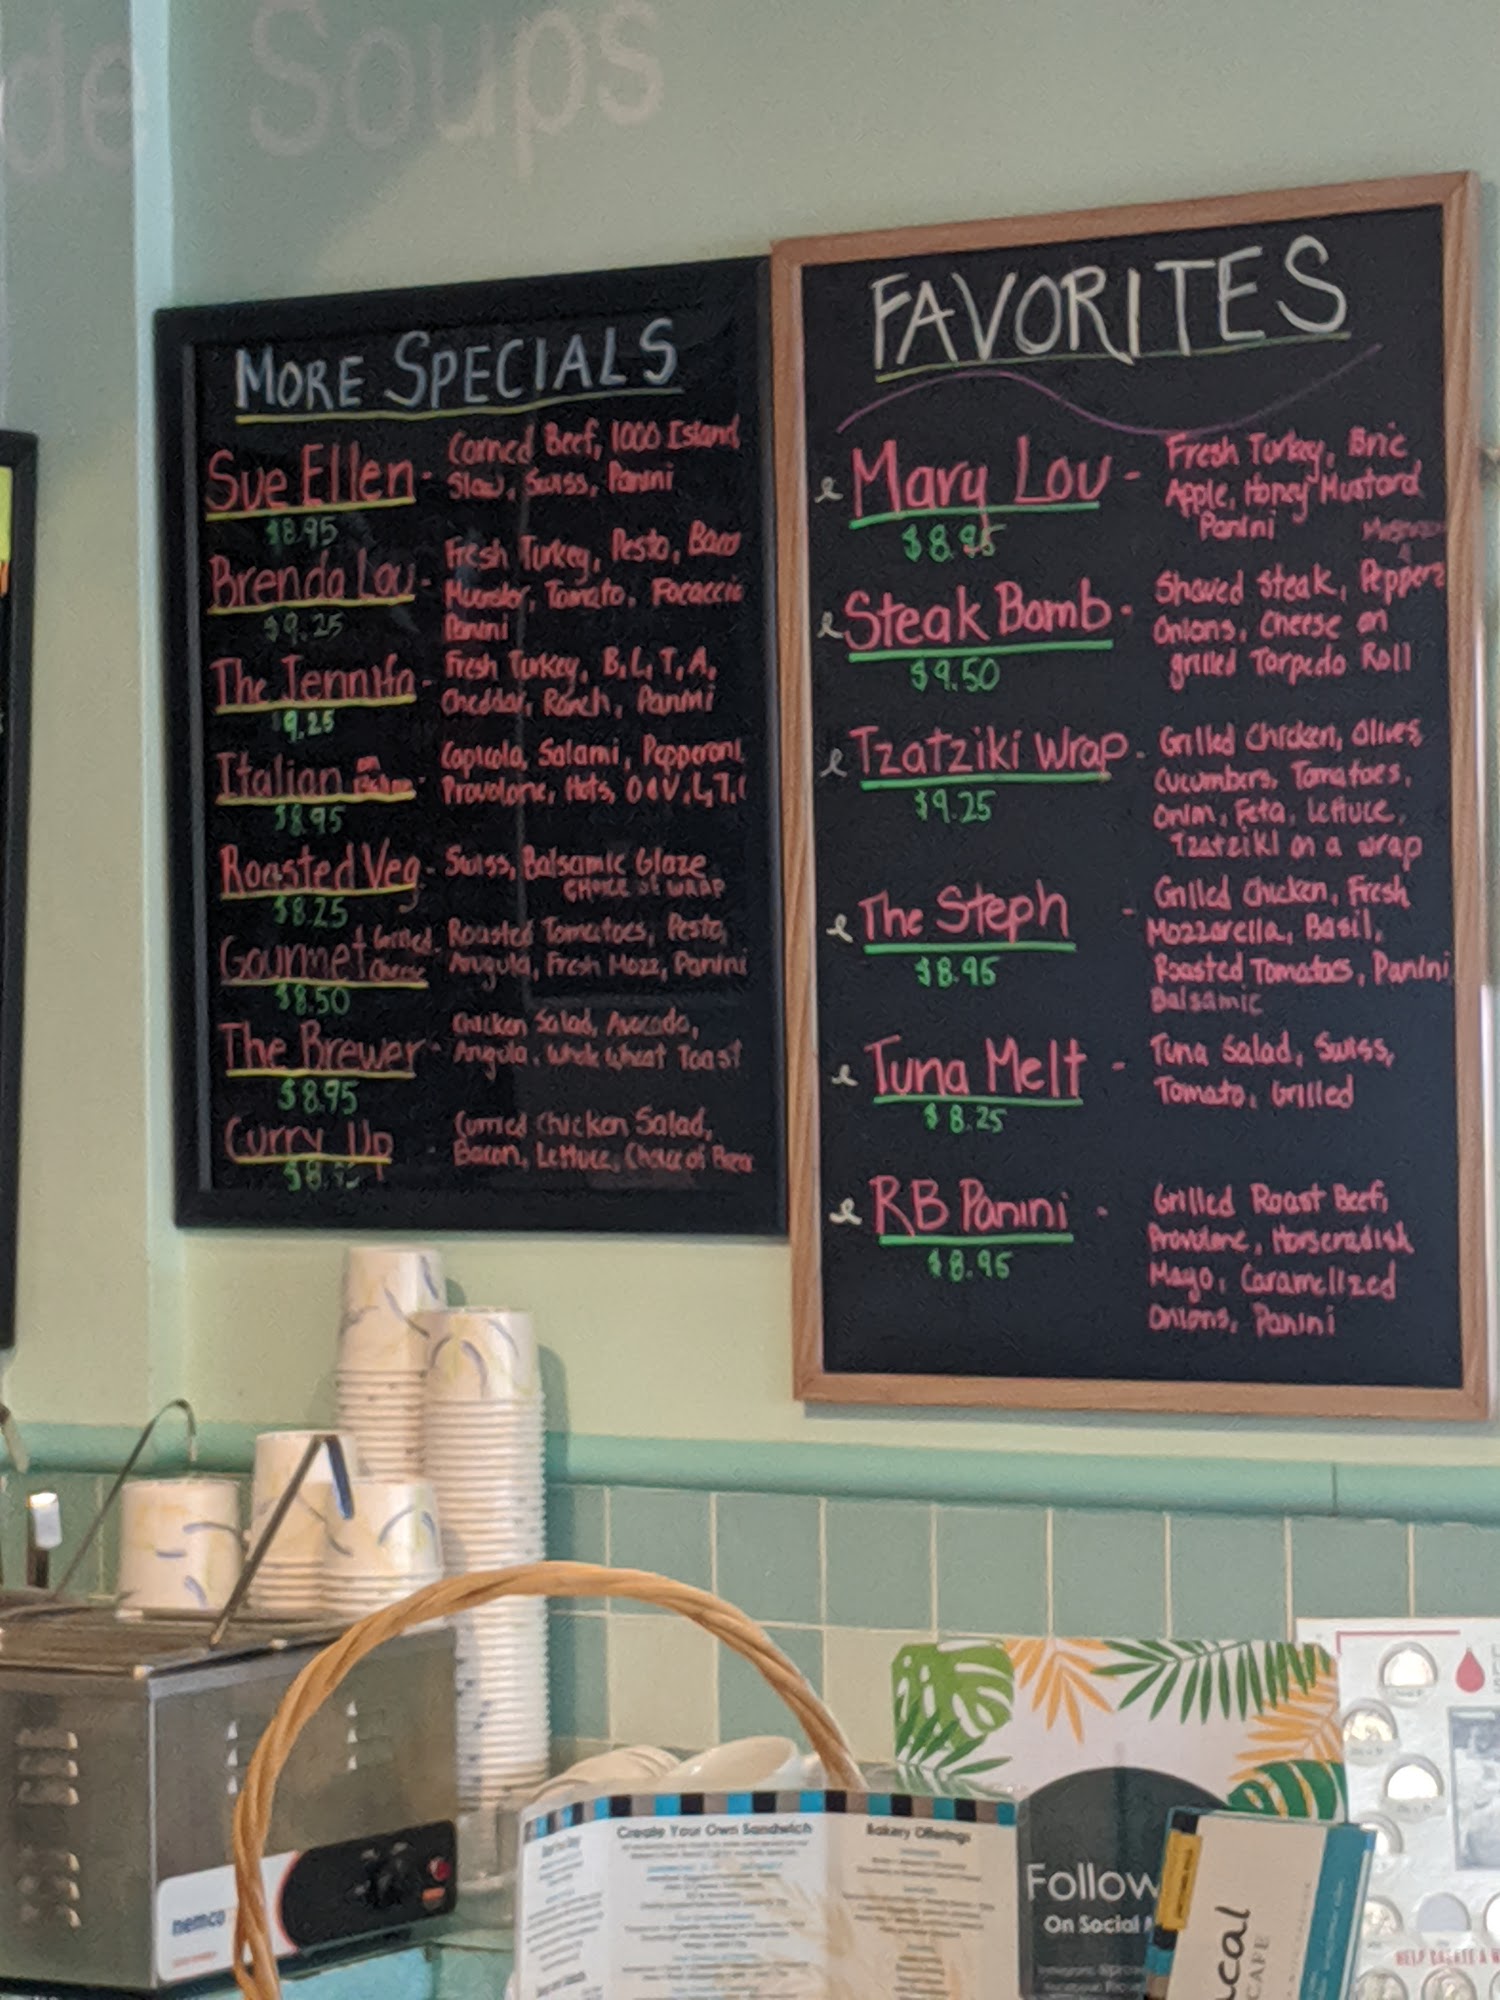 de Soups
MORE SPECIALS
Sue Ellen - Corned Beef, 1000 Island,
Slaw, Swiss, Panini
$8.95
Brenda Lou - Fresh Turkey, Pesto, Bacon
Muenster, Tomato, Focaccia
Panini
$9.25
The Jennifa - Fresh Turkey, B, L, T, A,
Cheddar, Ranch, Panini
9.25
Italian on - Capicola, Salami, Pepperoni,
Provolone, Hots, O&V, L, T,
$8.95
Roasted Veg - Swiss, Balsamic Glaze
CHOICE of WRAP
$8.25
Gourmet Grilled Cheese - Roasted Tomatoes, Pesto,
Arugula, Fresh Mozz, Panini
$8.50
The Brewer - Chicken Salad, Avocado,
Arugula, Whole Wheat Toast
$8.95
Curry Up - Curried Chicken Salad,
Bacon, Lettuce, Choice of
FAVORITES
Mary Lou - Fresh Turkey, Brie
Apple, Honey Mustard
Panini
$8.95
Steak Bomb - Shaved Steak, Peppers
Onions, Cheese on
grilled Torpedo Roll
$9.50
Tzatziki Wrap - Grilled Chicken, Olives,
Cucumbers, Tomatoes,
Onion, Feta, Lettuce,
Tzatziki on a wrap
$9.25
The Steph - Grilled Chicken, Fresh
Mozzarella, Basil,
Roasted Tomatoes, Panini,
Balsamic
$8.95
Tuna Melt - Tuna Salad, Swiss,
Tomato, Grilled
$8.25
RB Panini - Grilled Roast Beef,
Provolone, Horseradish
Mayo, Caramelized
Onions, Panini
$8.95
nemco
Create Your Own Sandwich
Bakery Offerings
Follow
On Social
ical
CAFE